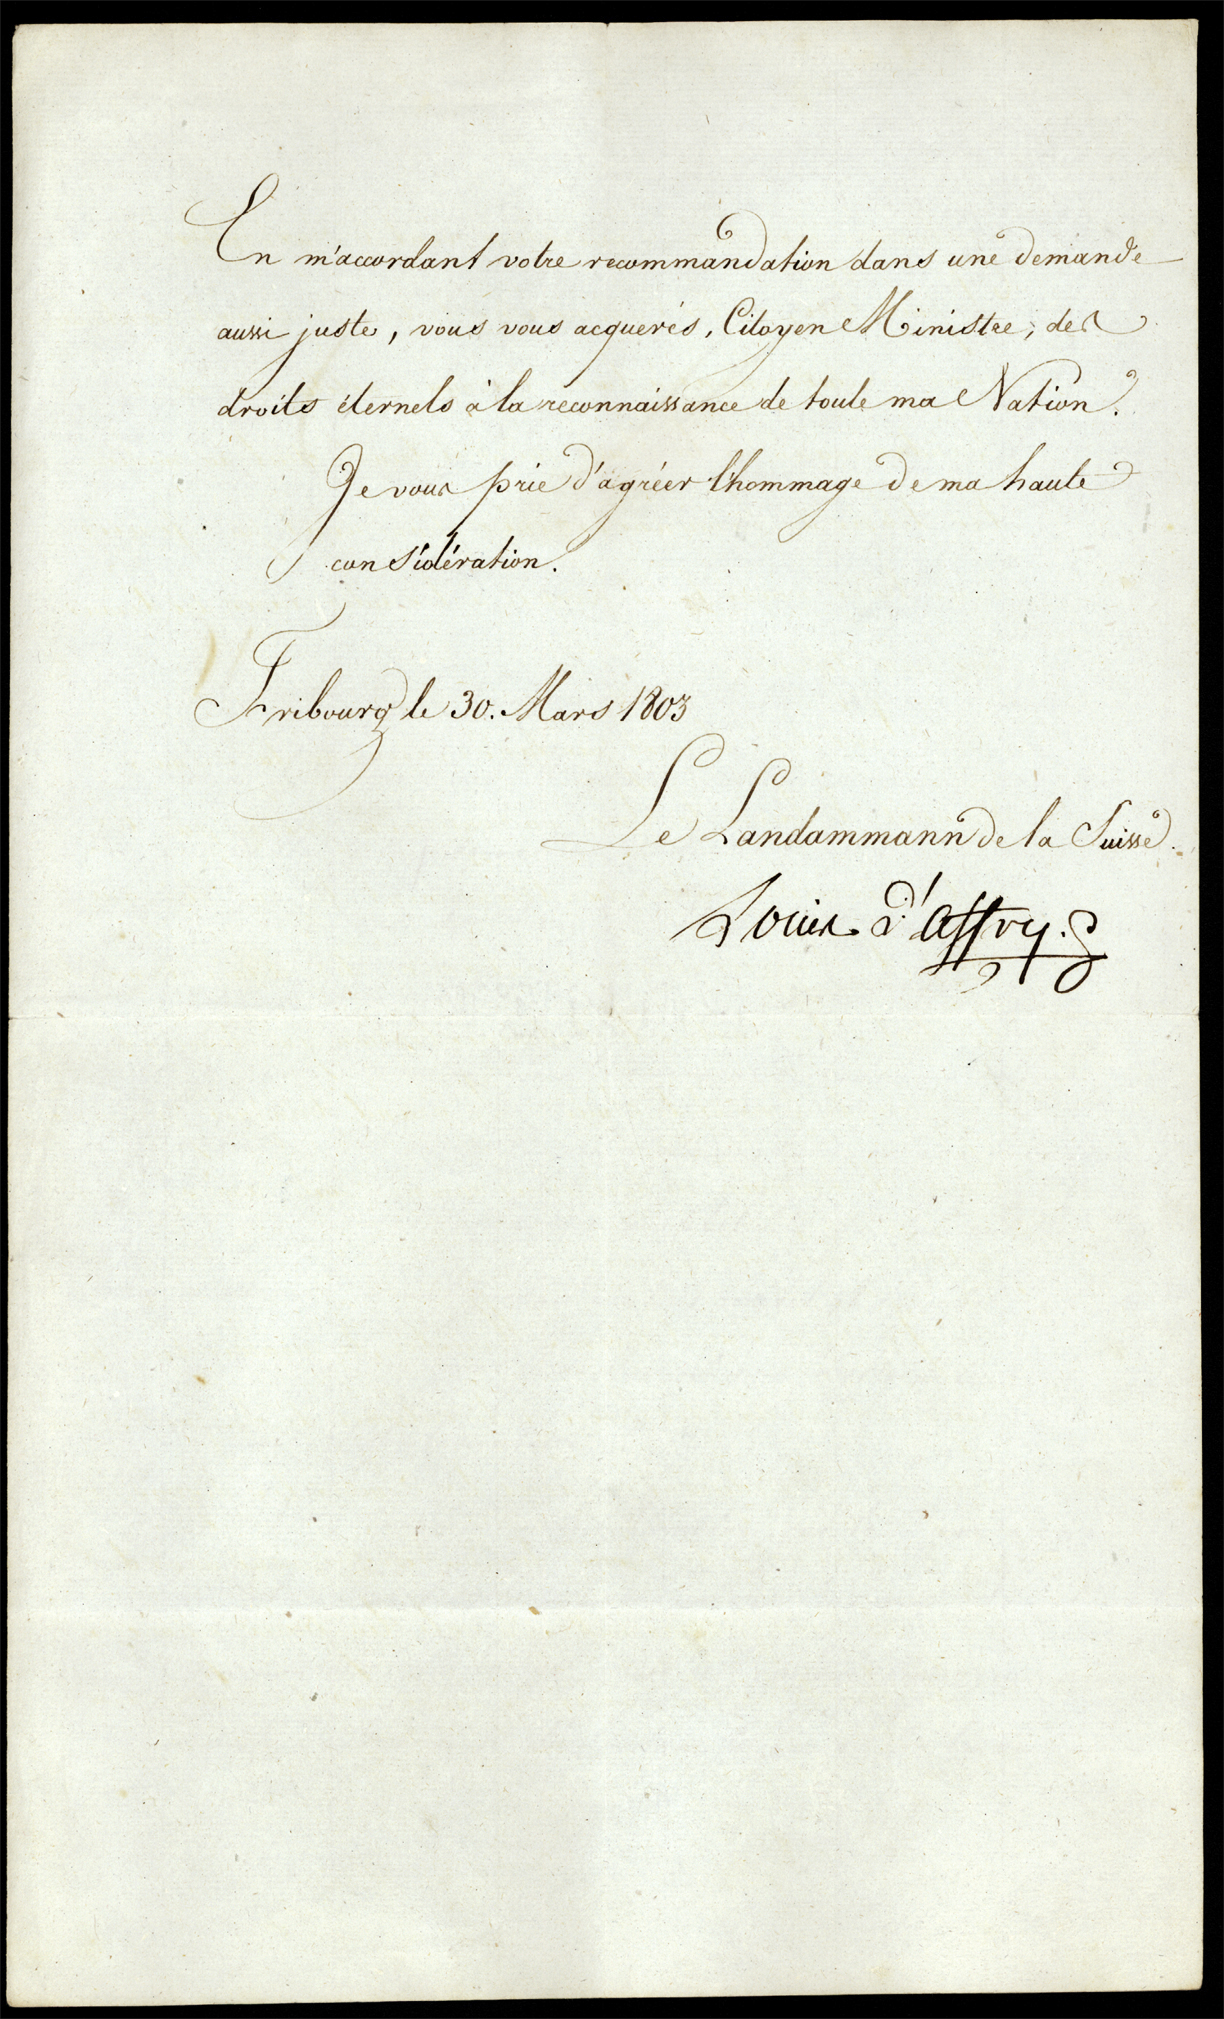 En m'accordant votre recommandation dans une demande
aussi juste, vous vous acquerés, Citoyen Ministre, des
droits éternels à la reconnaissance de toute ma Nation.
Je vous prie d'agréer l'hommage de ma haute
considération.
Fribourg le 30. Mars 1803
Le Landammann de la Suisse.
Louis d'Affry.